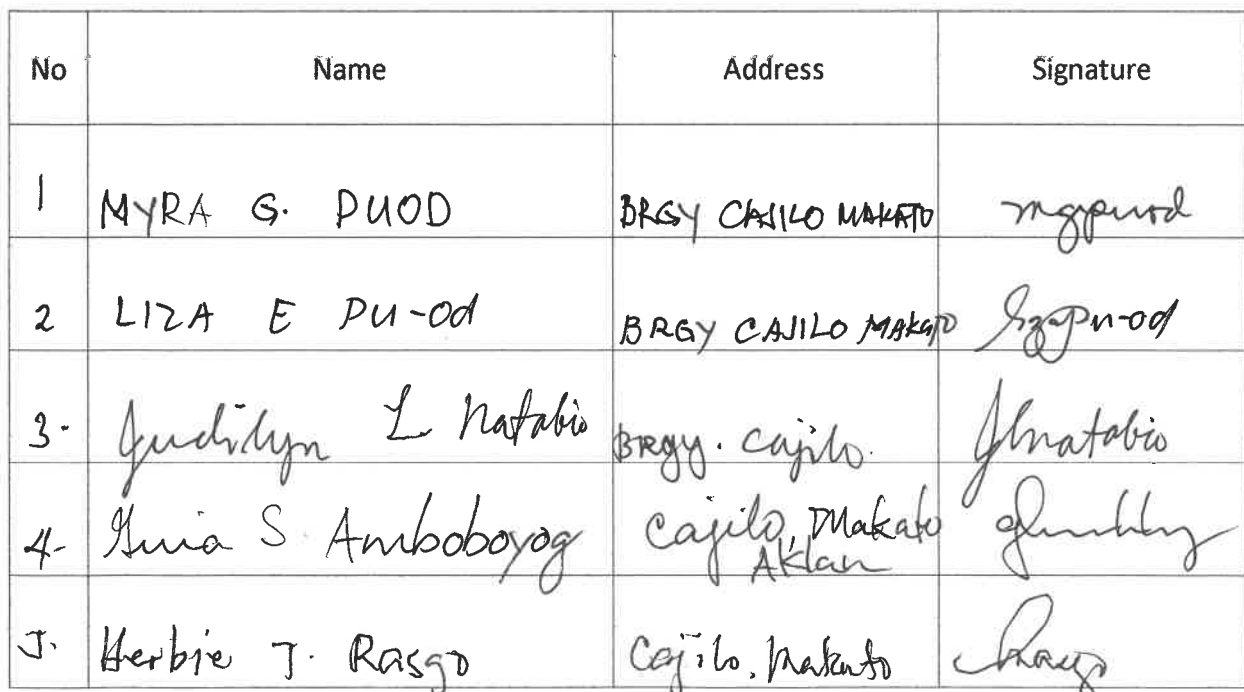 No Name Address Signature
1 MYRA G. PUOD BRGY CAJILO MAKATO mgpuod
2 LIZA E PU-Od BRGY CAJILO MAKATO Pu-od
3. Judilyn L Natabio BRgy. Cajilo. Jlnatabio
4- S. Amboboyog Cajilo, Makato
Aklan
5. Herbie J. Rasgo Cajilo, Makato